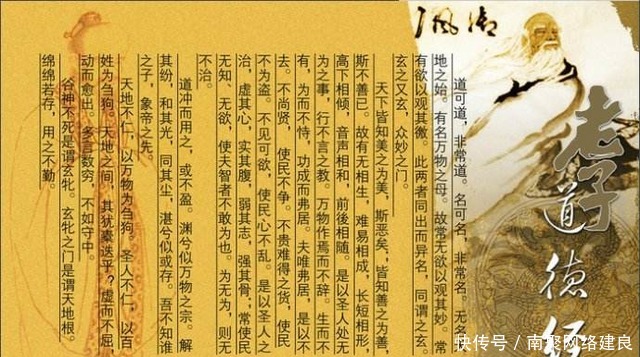 老子
道德经
道可道，非常道。名可名，非常名。无名天
地之始。有名万物之母。故常无欲以观其妙。常
有欲以观其微。此两者同出而异名，同谓之
玄之又玄，众妙之门。
天下皆知美之为美，斯恶矣；皆知善之为善，
斯不善已。故有无相生，难易相成，长短相形，
高下相倾，音声相和，前後相随。是以圣人处无
为之事，行不言之教。万物作焉而不辞。生而不
有，为而不恃，功成而弗居。夫唯弗居，是以不
去。不尚贤， 使民不争。不贵难得之货，使民
不为盗。不见可欲，使民心不乱。是以圣人之
治，虚其心，实其腹，弱其志，强其骨；常使民
无知、无欲，使夫智者不敢为也。为无为，则无
不治。
道冲而用之，或不盈。渊兮似万物之宗。解
其纷，和其光，同其尘，湛兮似或存。吾不知谁
之子，象帝之先。
天地不仁，以万物为刍狗。圣人不仁，以百
姓为刍狗。天地之间，其犹橐迭乎？虚而不屈
动而愈出。多言数穷，不如守中。
谷神不死是谓玄牝。玄牝之门是谓天地根。
绵绵若存，用之不勤。
快传号 / 南粲网络建良